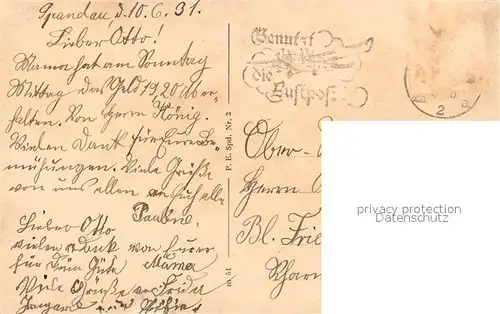 Spandau, d. 10.6.31.
Lieber Otto!
Mama hat am Sonntag
Mittag das Geld 19,20 ab er-
halten. Von Herrn König.
Vielen Dank für Eure Be-
mühungen. Viele Grüße
von uns allen an Euch alle
Pauline.
Lieber Otto
vielen Dank von Eurer
für Deine Güte Mama
Viele Grüße von Frida
Benutzt
die
Luftpost
2
P. E. Spd. Nr. 3
m 51
Ober-
Herrn O
Bl. Frie
privacy protection
Datenschutz